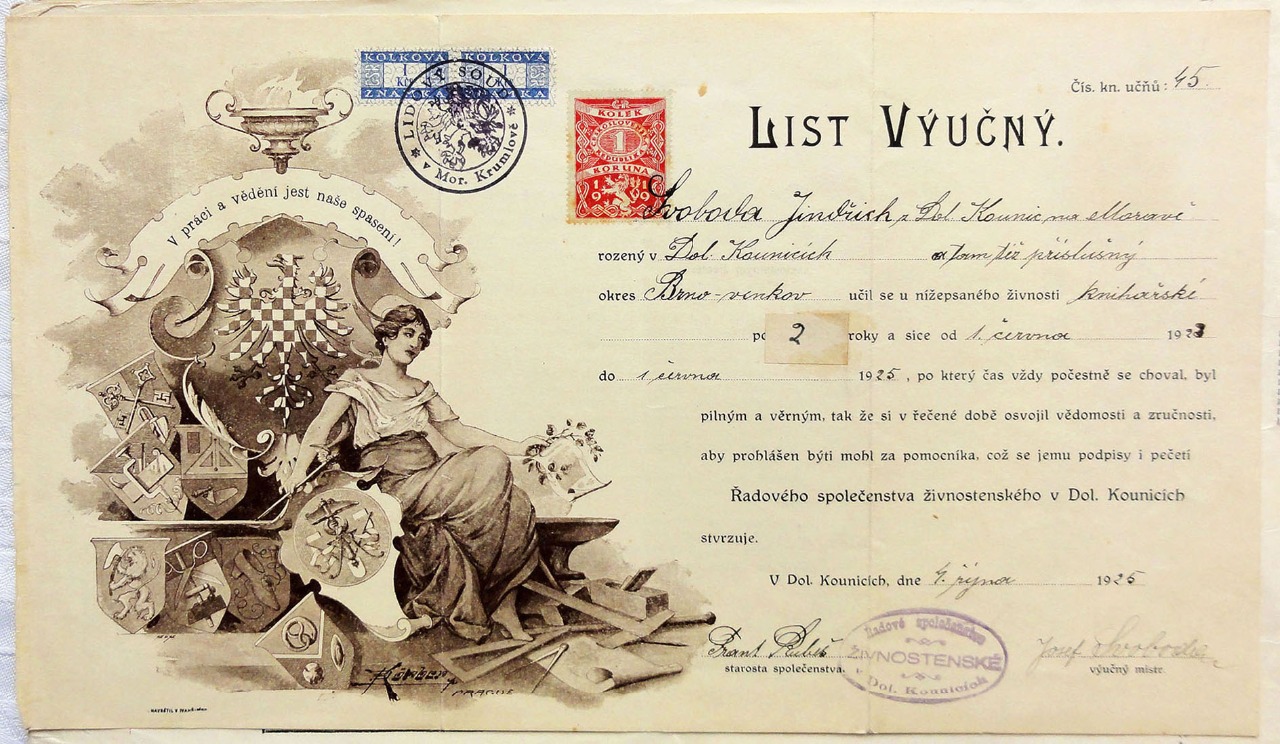 KOLKOVÁ KOLKOVÁ
1 1
Kč
ZNÁMKA
* LIDOVÝ SOUD *
v Mor. Krumlově
ČR
KOLEK
1
KORUNA
1919
Čís. kn. učňů : 45.
LIST VÝUČNÝ.
V práci a vědění jest naše spasení!
Svoboda Jindřich z Dol. Kounic na Moravě
rozený v Dol. Kounicích a tamtéž příslušný
okres Brno-venkov učil se u nížepsaného živnosti knihařské
po 2 roky a sice od 1. června 1923
do 1 června 1925, po který čas vždy počestně se choval, byl
pilným a věrným, tak že si v řečené době osvojil vědomosti a zručnosti,
aby prohlášen býti mohl za pomocníka, což se jemu podpisy i pečetí
Řadového společenstva živnostenského v Dol. Kounicích
stvrzuje.
V Dol. Kounicích, dne 4. října 1925
Frant. Josef Svoboda
starosta společenstva. výučný mistr.
Řadové společenstvo
ŽIVNOSTENSKÉ
v Dol. Kounicích
PRAGUE